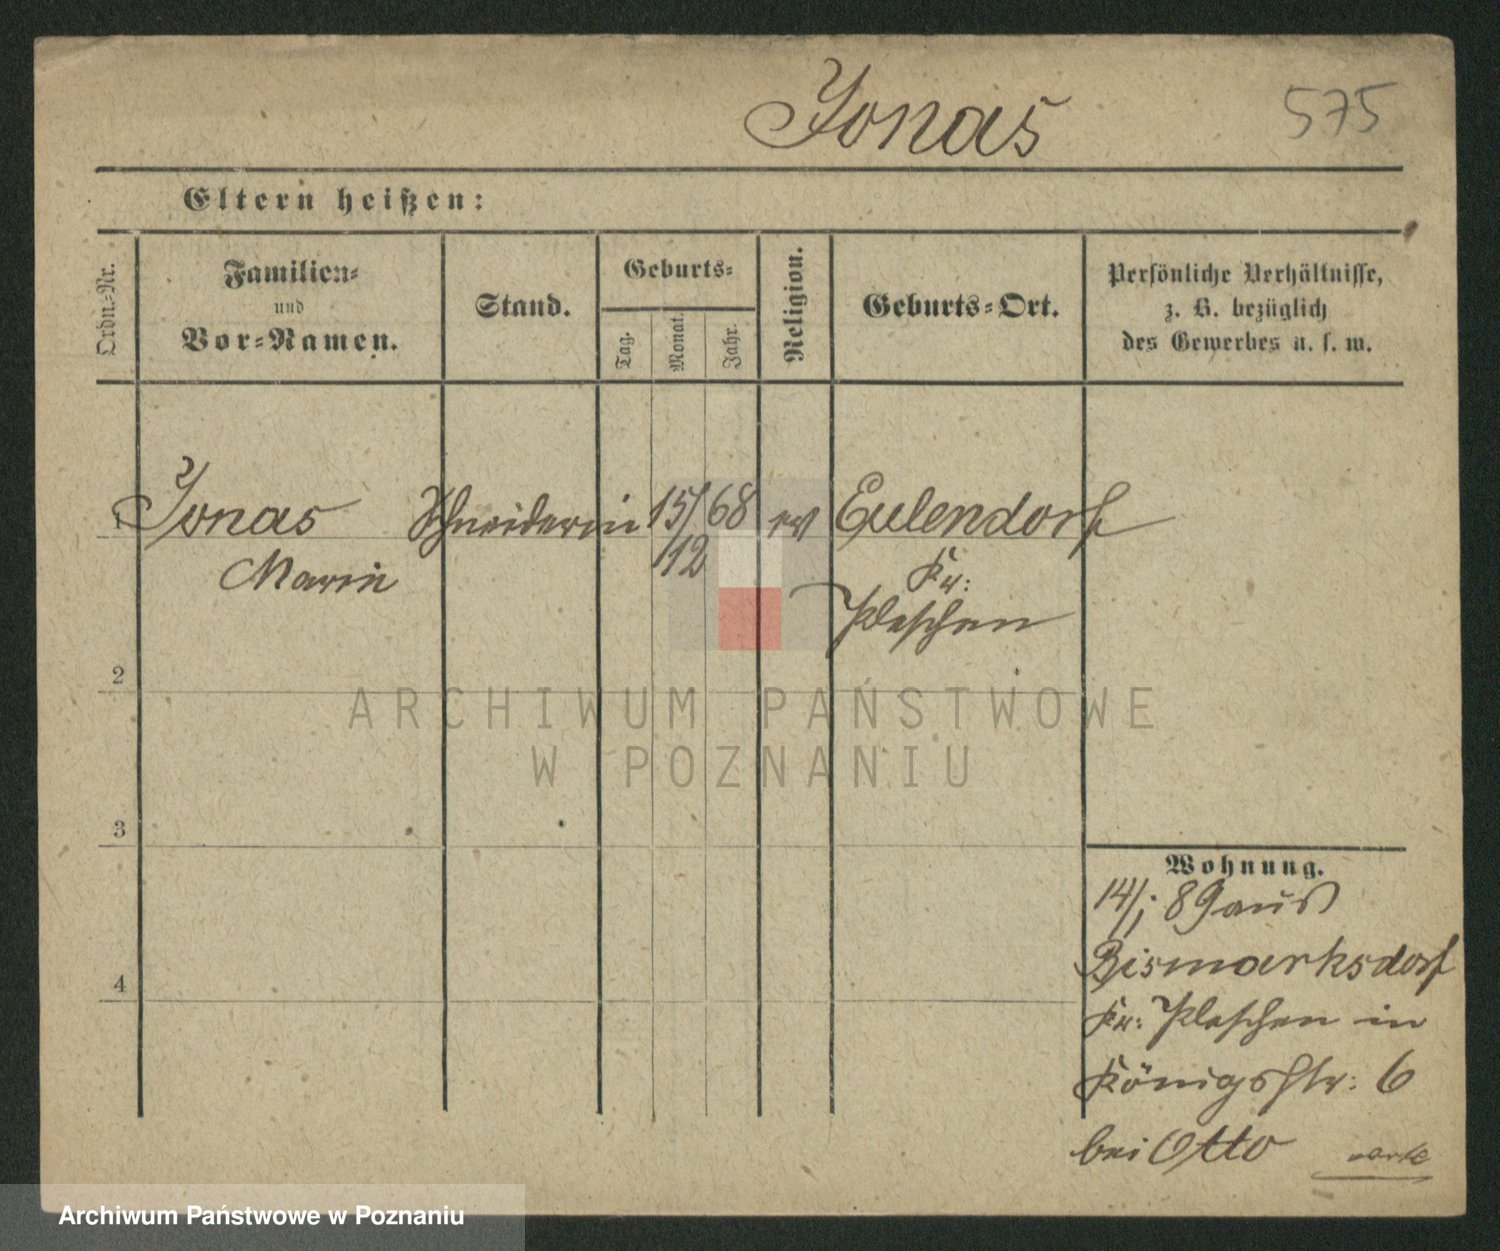 Jonas 575
Eltern heißen:
Ordn.-Nr.
Familien-
und
Vor-Namen.
Stand.
Geburts-
Tag.
Monat.
Jahr.
Religion.
Geburts-Ort.
Persönliche Verhältnisse,
z. B. bezüglich
des Gewerbes u. s. w.
1 Jonas Schneiderin 15/12 68 ev Eulendorf
Marie Kr:
Pleschen
2
ARCHIWUM PAŃSTWOWE
W POZNANIU
3
Wohnung.
14/j 89 aus
Bismarksdorf
4
Kr: Pleschen in
Königsstr: 6
bei Otto
Archiwum Państwowe w Poznaniu